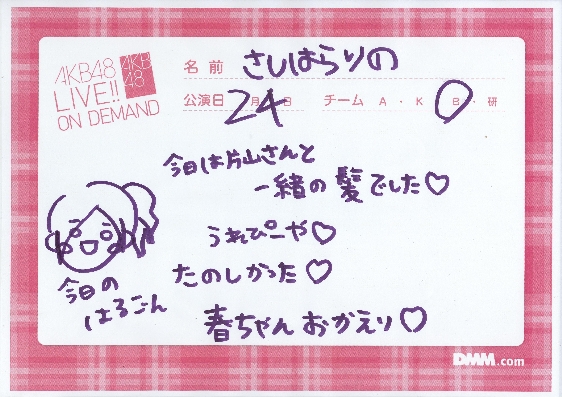 AKB48
LIVE!!
ON DEMAND
AKB
48
名前 さしはらりの
公演日 24 月 日 チーム A・K・B・研
今日は片山さんと
一緒の髪でした♡
うれぴーや♡
たのしかった♡
春ちゃんおかえり♡
今日の
はるごん
DMM.com